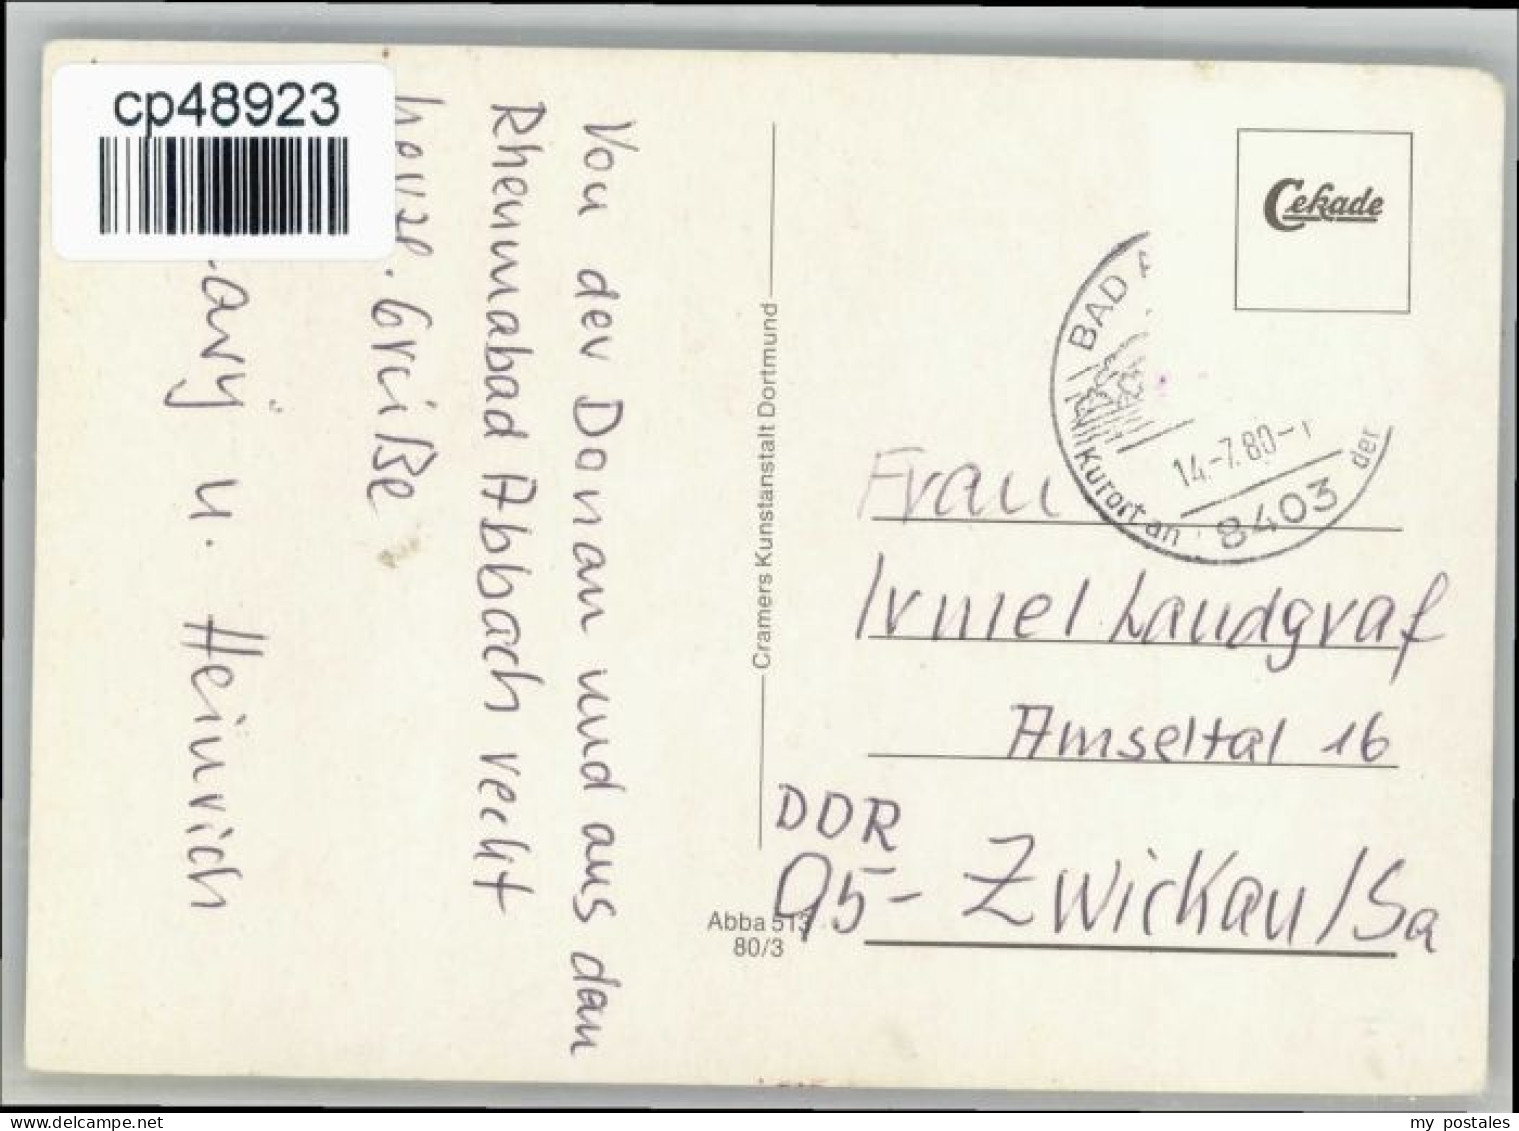 cp48923
Von der Donau und aus dem
Rheumabad Abbach recht
herzl. Grüße
u. Heinrich
Cramers Kunstanstalt Dortmund
Abba 513
80/3
Cekade
BAD
14.-7.80-
8403
Kurort an der
Frau
Irmel Landgraf
Amseltal 16
DDR
95- Zwickau/Sa
my postales